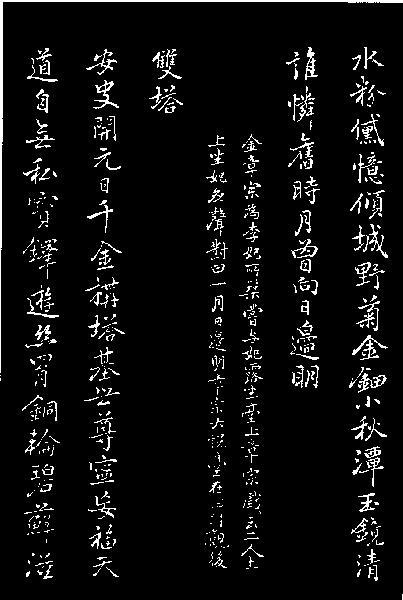 水粉黛憶傾城野菊金鈿小秋潭玉鏡清
誰憐舊時月曾向日邊明
金章宗為李妃所築嘗與妃露坐臺上章宗戲云二人土
上坐妃應聲對曰一月日邊明章宗大悅臺在觀後
雙塔
安史開元日千金構塔基世尊寧妄福天
道自無私寶鐸遊絲罥銅輪碧蘚滋